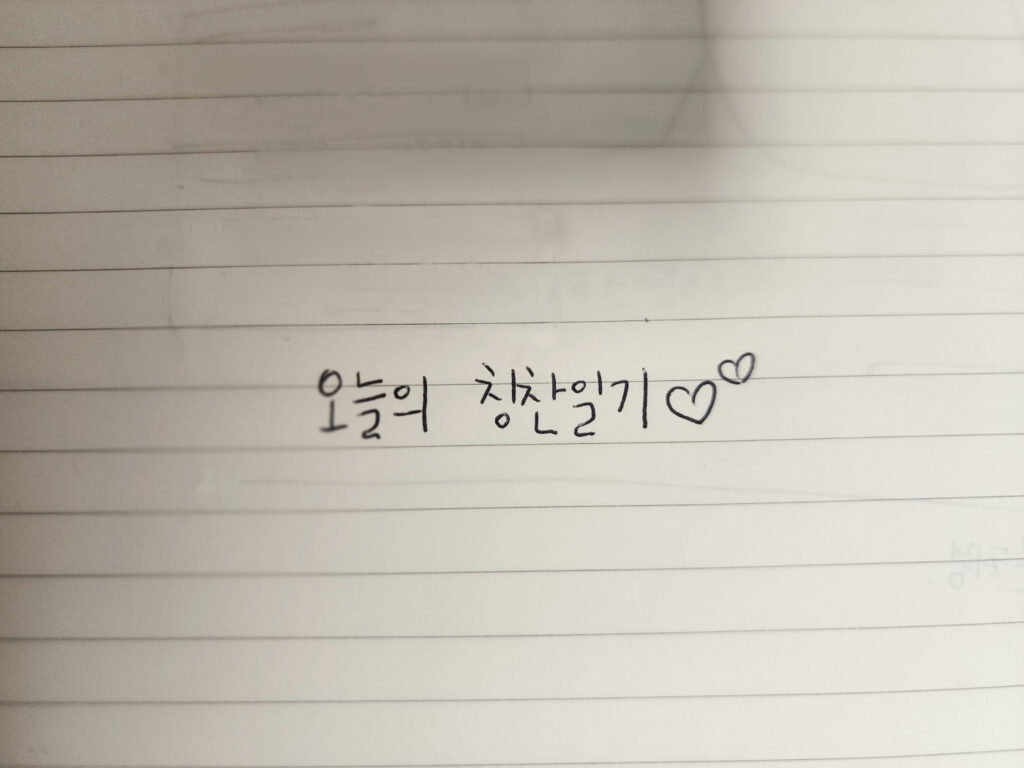 오늘의 칭찬일기♡♡